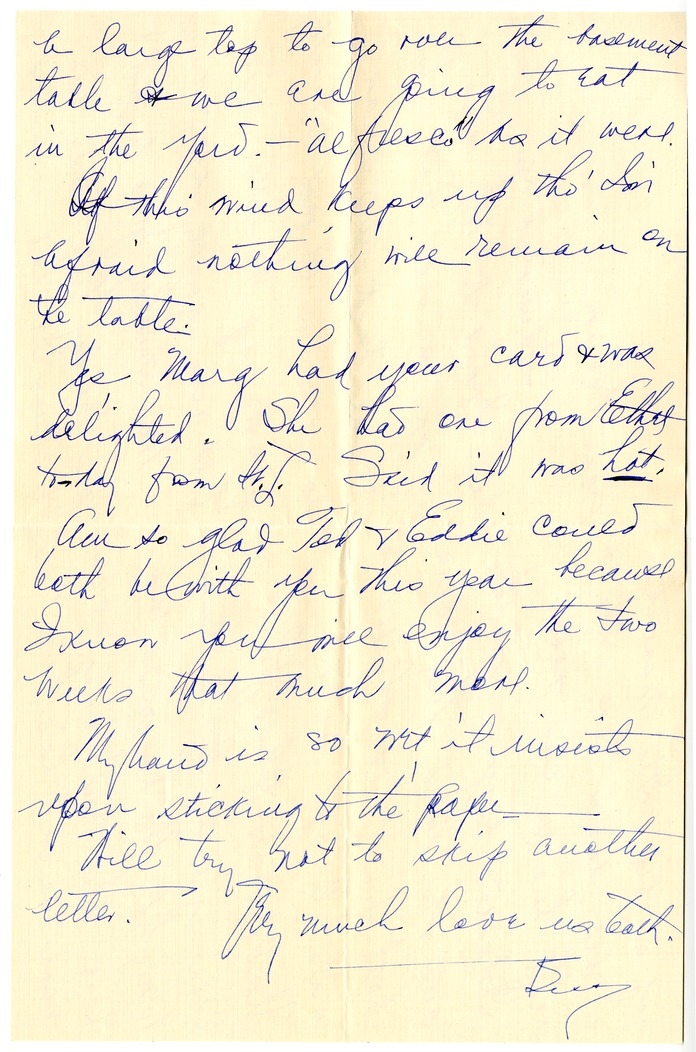 a large top to go over the basement
table & we are going to eat
in the yard. — "al fresco" as it were.
If this wind keeps up tho' I'm
afraid nothing will remain on
the table.
Yes Marg had your card & was
delighted. She had one from Ethel
today from N.J. Said it was hot.
Am so glad Ted & Eddie could
both be with you this year because
I know you will enjoy the two
weeks that much more.
My hand is so wet it insists
upon sticking to the paper
Will try not to skip another
letter. Very much love us both.